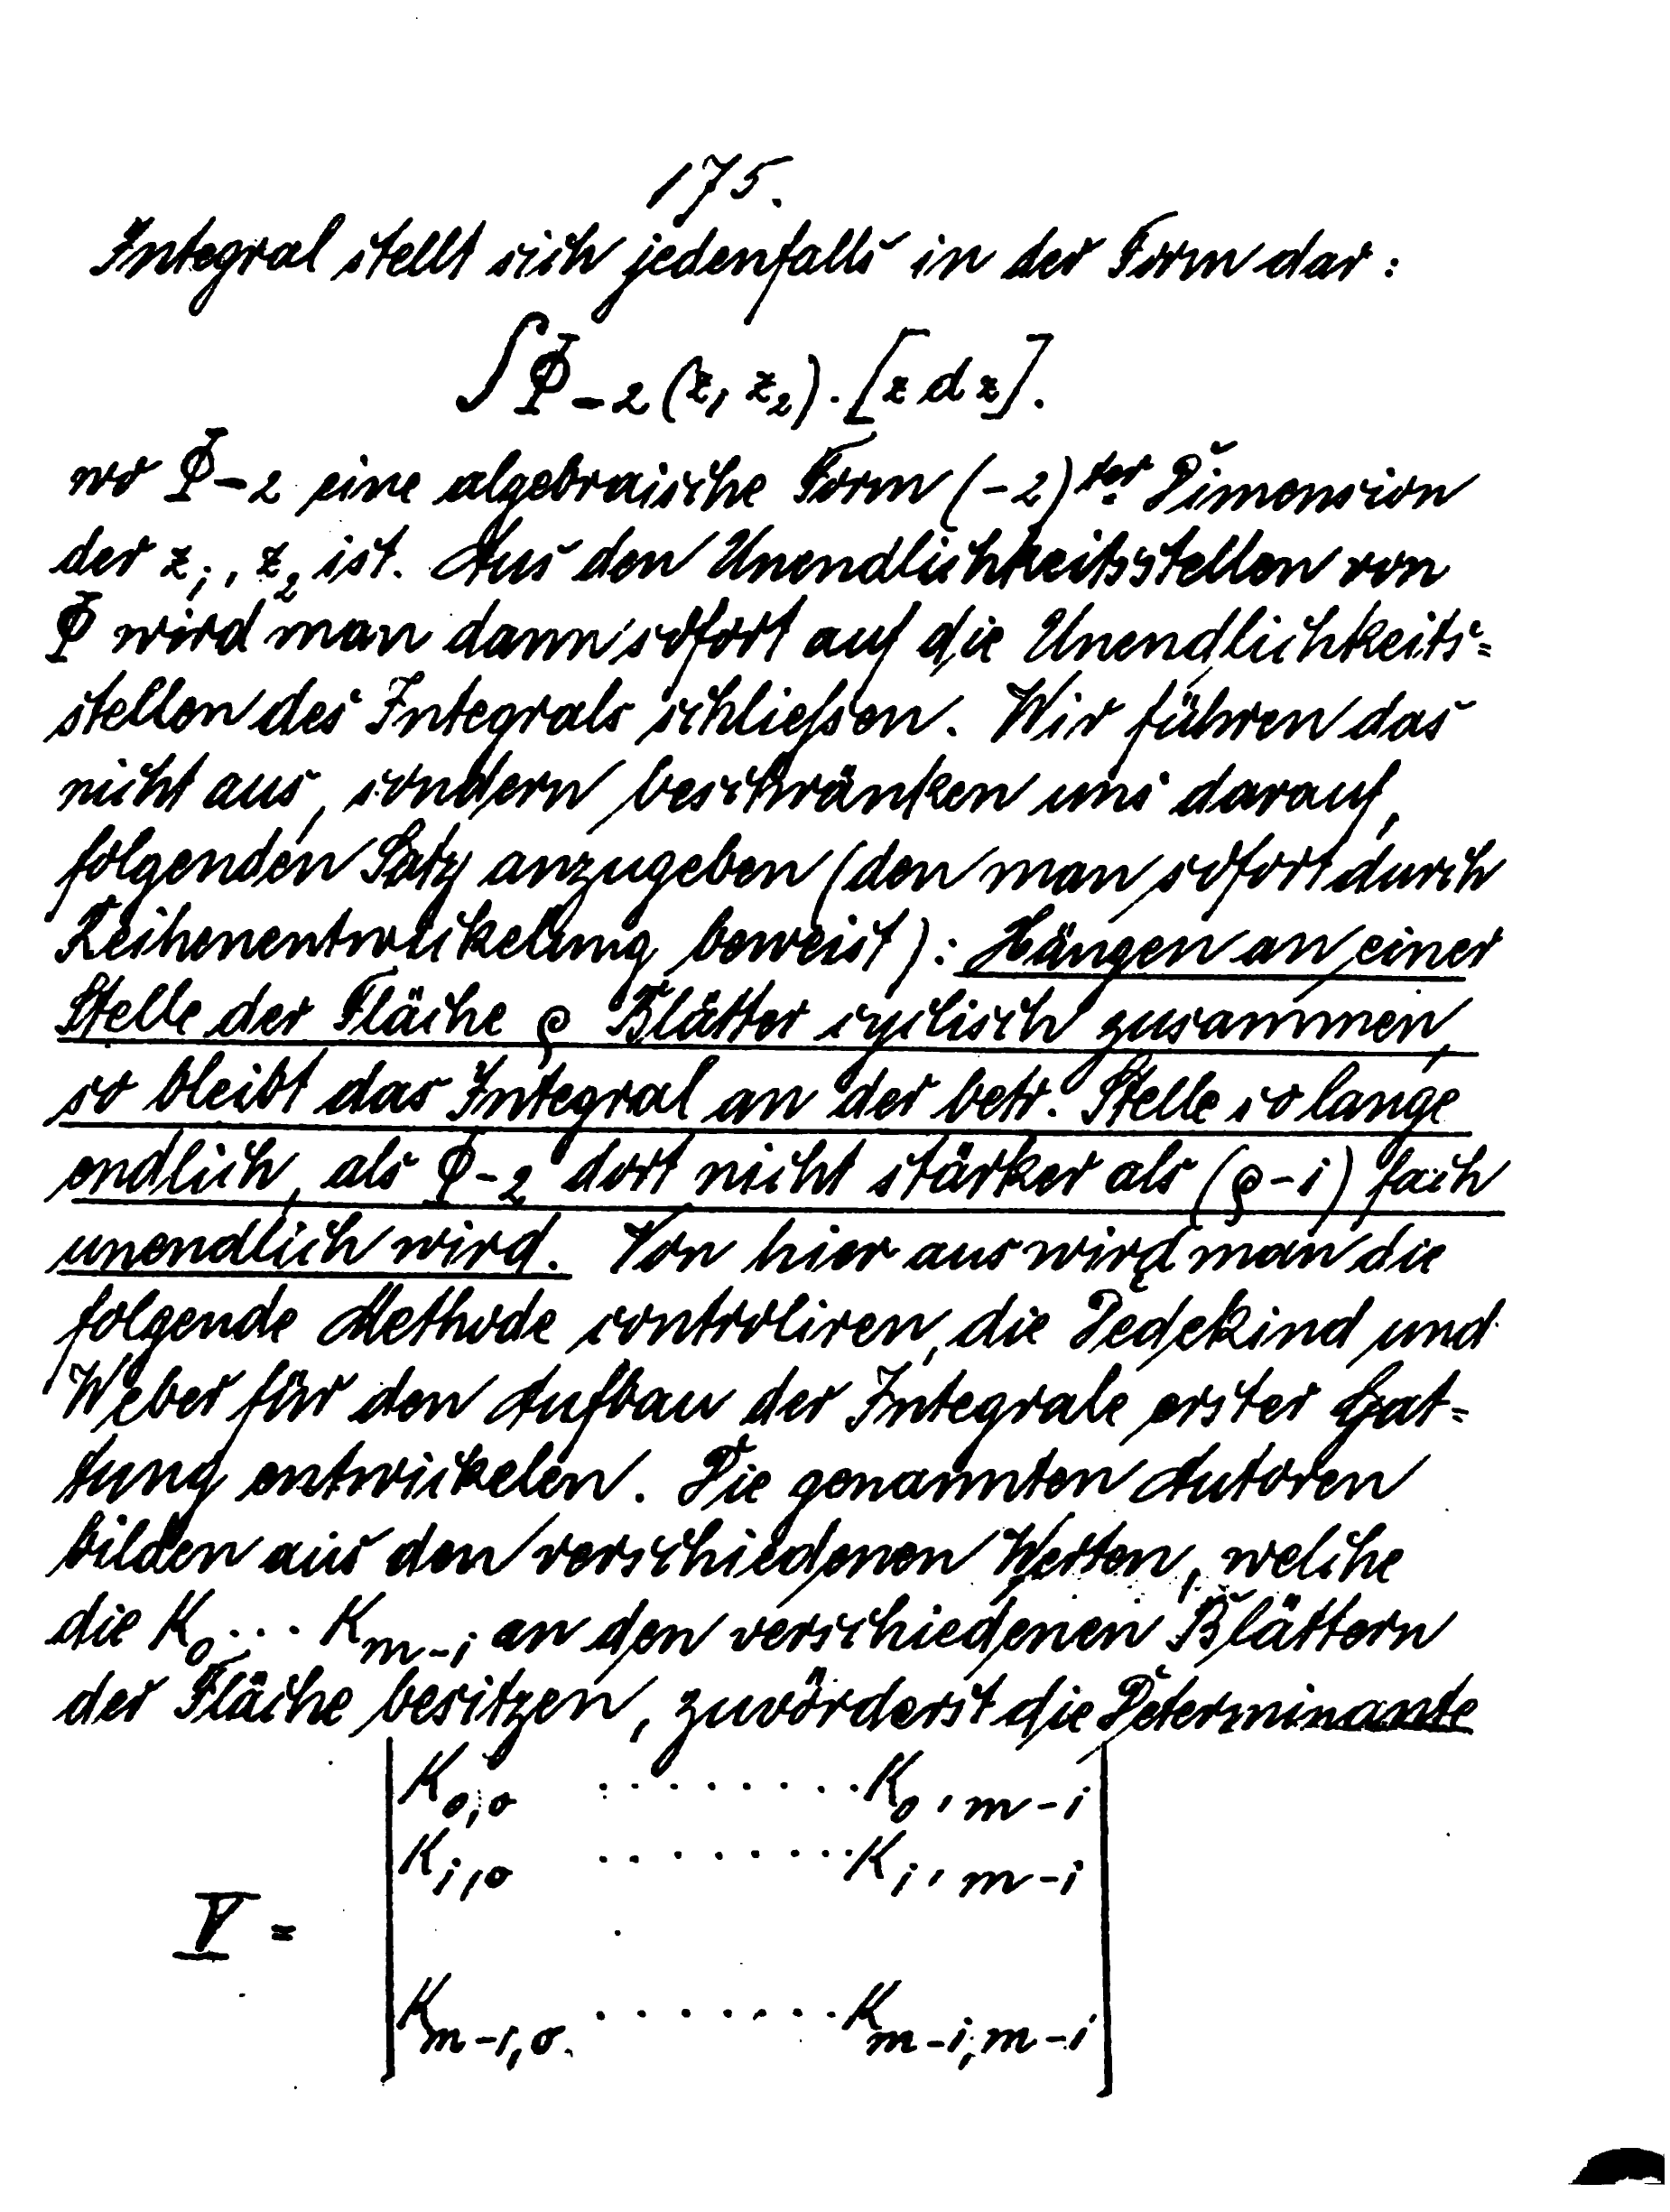 175.
Integral stellt sich jedenfalls in der Form dar:
∫ Φ₋₂ (z₁ z₂) . [z d z].
wo Φ₋₂ eine algebraische Form (-2)ter Dimension
der z₁, z₂ ist. Aus den Unendlichkeitsstellen von
Φ wird man dann sofort auf die Unendlichkeits=
stellen des Integrals schließen. Wir führen das
nicht aus, sondern beschränken uns darauf,
folgenden Satz anzugeben (den man sofort durch
Reihenentwickelung beweist): Hängen an einer
Stelle der Fläche ϱ Blätter cyclisch zusammen,
so bleibt das Integral an der betr. Stelle so lange
endlich, als Φ₋₂ dort nicht stärker als (ϱ-1) fach
unendlich wird. Von hier aus wird man die
folgende Methode controliren, die Dedekind und
Weber für den Aufbau der Integrale erster Gat=
tung entwickelen. Die genannten Autoren
bilden aus den verschiedenen Werten, welche
die K₀ ... Kₘ₋₁ an den verschiedenen Blättern
der Fläche besitzen, zuvörderst die Determinante
K₀,₀ ........ K₀,ₘ₋₁
K₁,₀ ........ K₁,ₘ₋₁
V =
Kₘ₋₁,₀ ....... Kₘ₋₁,ₘ₋₁